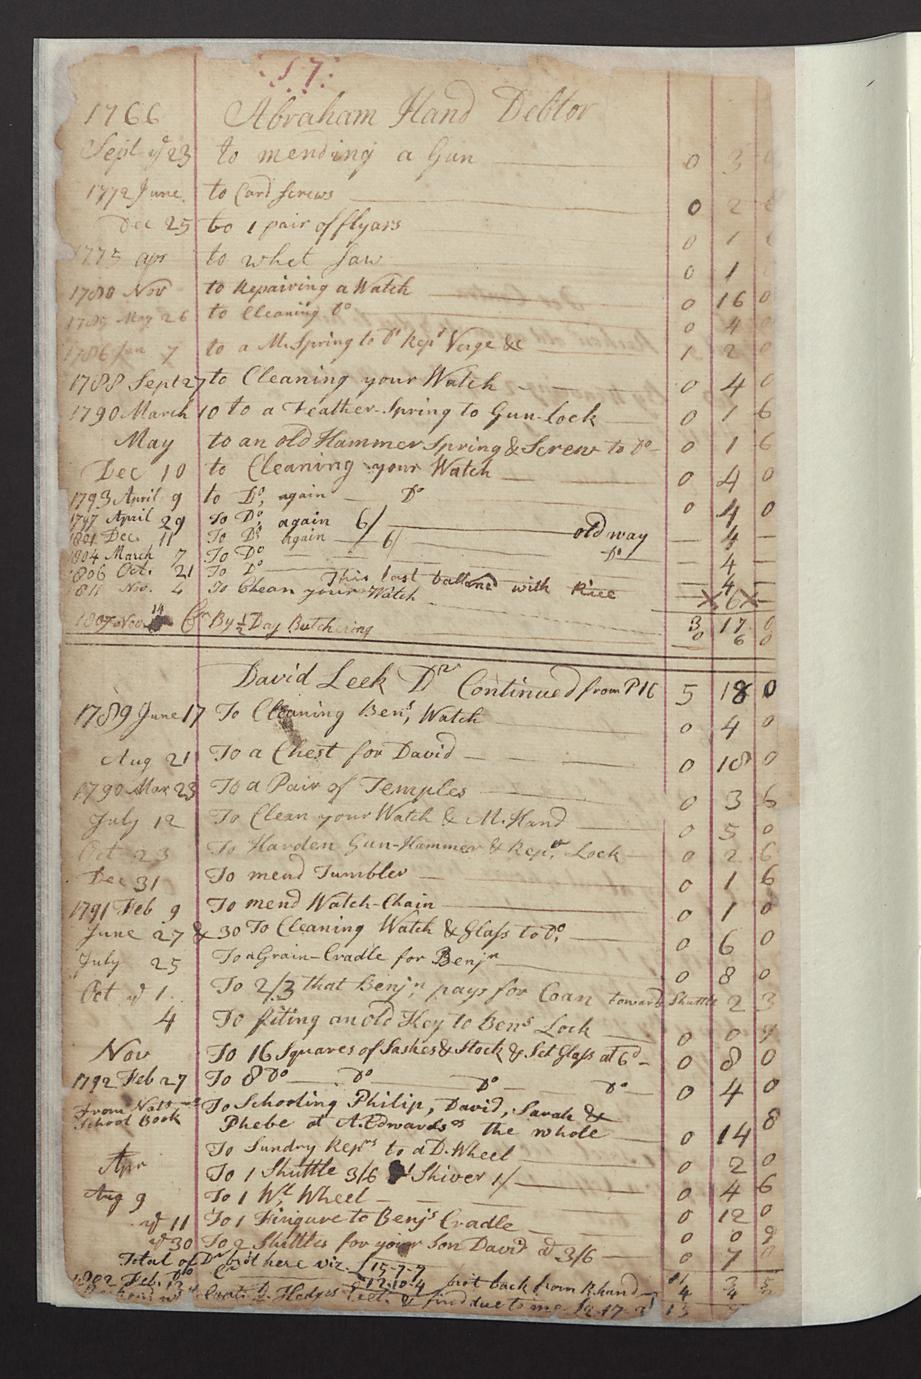 17.
1766 Abraham Hand Debtor
Sept ye 23 to mending a Gun 0 3
1772 June to Card Screws 0 2
Dec 25 to 1 pair of flyars 0 1
1775 apr to whet Saw 0 1
1780 Nov to Repairing a Watch 0 16 0
1785 May 26 to Cleaning Do 0 4 0
1786 Jan 7 to a M. Spring to Do Repr Verge &c 1 2 0
1788 Sept 27 to Cleaning your Watch 0 4 0
1790 March 10 to a Feather-Spring to Gun-Lock 0 1 6
May to an old Hammer Spring & Screw to Do 0 1 6
Dec 10 to Cleaning your Watch 0 4 0
1793 April 9 to Do again Do 0 4 0
1797 April 29 To Do again 6/ old way — 4 —
1801 Dec. 11 To Do again 6/ Do — 4 —
1804 March 7 To Do — 4 —
1806 Oct. 21 To Do This last balland with Rice — 4 —
1811 Nov. 4 To Clean your Watch 6
3 17 0
1807 Nov 14 Cr By ½ Day Butchering 0 6 0
David Leek Dr Continued from P16 5 18 0
1789 June 17 To Cleaning Benj, Watch 0 4 0
Aug 21 To a Chest for David 0 18 0
1790 Mar 23 To a Pair of Temples 0 3 6
July 12 To Clean your Watch & M. Hand 0 5 0
Oct 23 To Harden Gun-Hammer & Repr, Lock 0 2 6
Dec 31 To mend Tumbler 0 1 6
1791 Feb 9 To mend Watch-Chain 0 1 0
June 27 & 30 To Cleaning Watch & Glass to Do, 0 6 0
July 25 To a Grain-Cradle for Benjn 0 8 0
Oct ye 1. To 2/3 that Benjn, pays for Coan toward Shuttle 2 3
4 To fiting an old Key to Bens Lock 0 0 9
Nov To 16 Squares of Sashes & Stock & Set Glass at 6d 0 8 0
1792 Feb 27 To 8 Do Do Do Do 0 4 0
From School Book To Schooling Philip, David, Sarah &
Phebe at A. Edwards's the whole 0 14 8
To Sundry Reps to a D. Wheel 0 2 0
Apr To 1 Shuttle 3/6 Skiver 1/ 0 4 6
Aug 9 To 1 Wt Wheel 0 12 0
ye 11 To 1 Fingure to Benjs Cradle 0 0 9
ye 30 To 2 Shuttles for your Son David at 3/6 0 7 0
Total of Dr brot here viz. £15-7-7
1802 Feb. 13 £12-10-4 brot back from R. hand
due to me £2-17-3